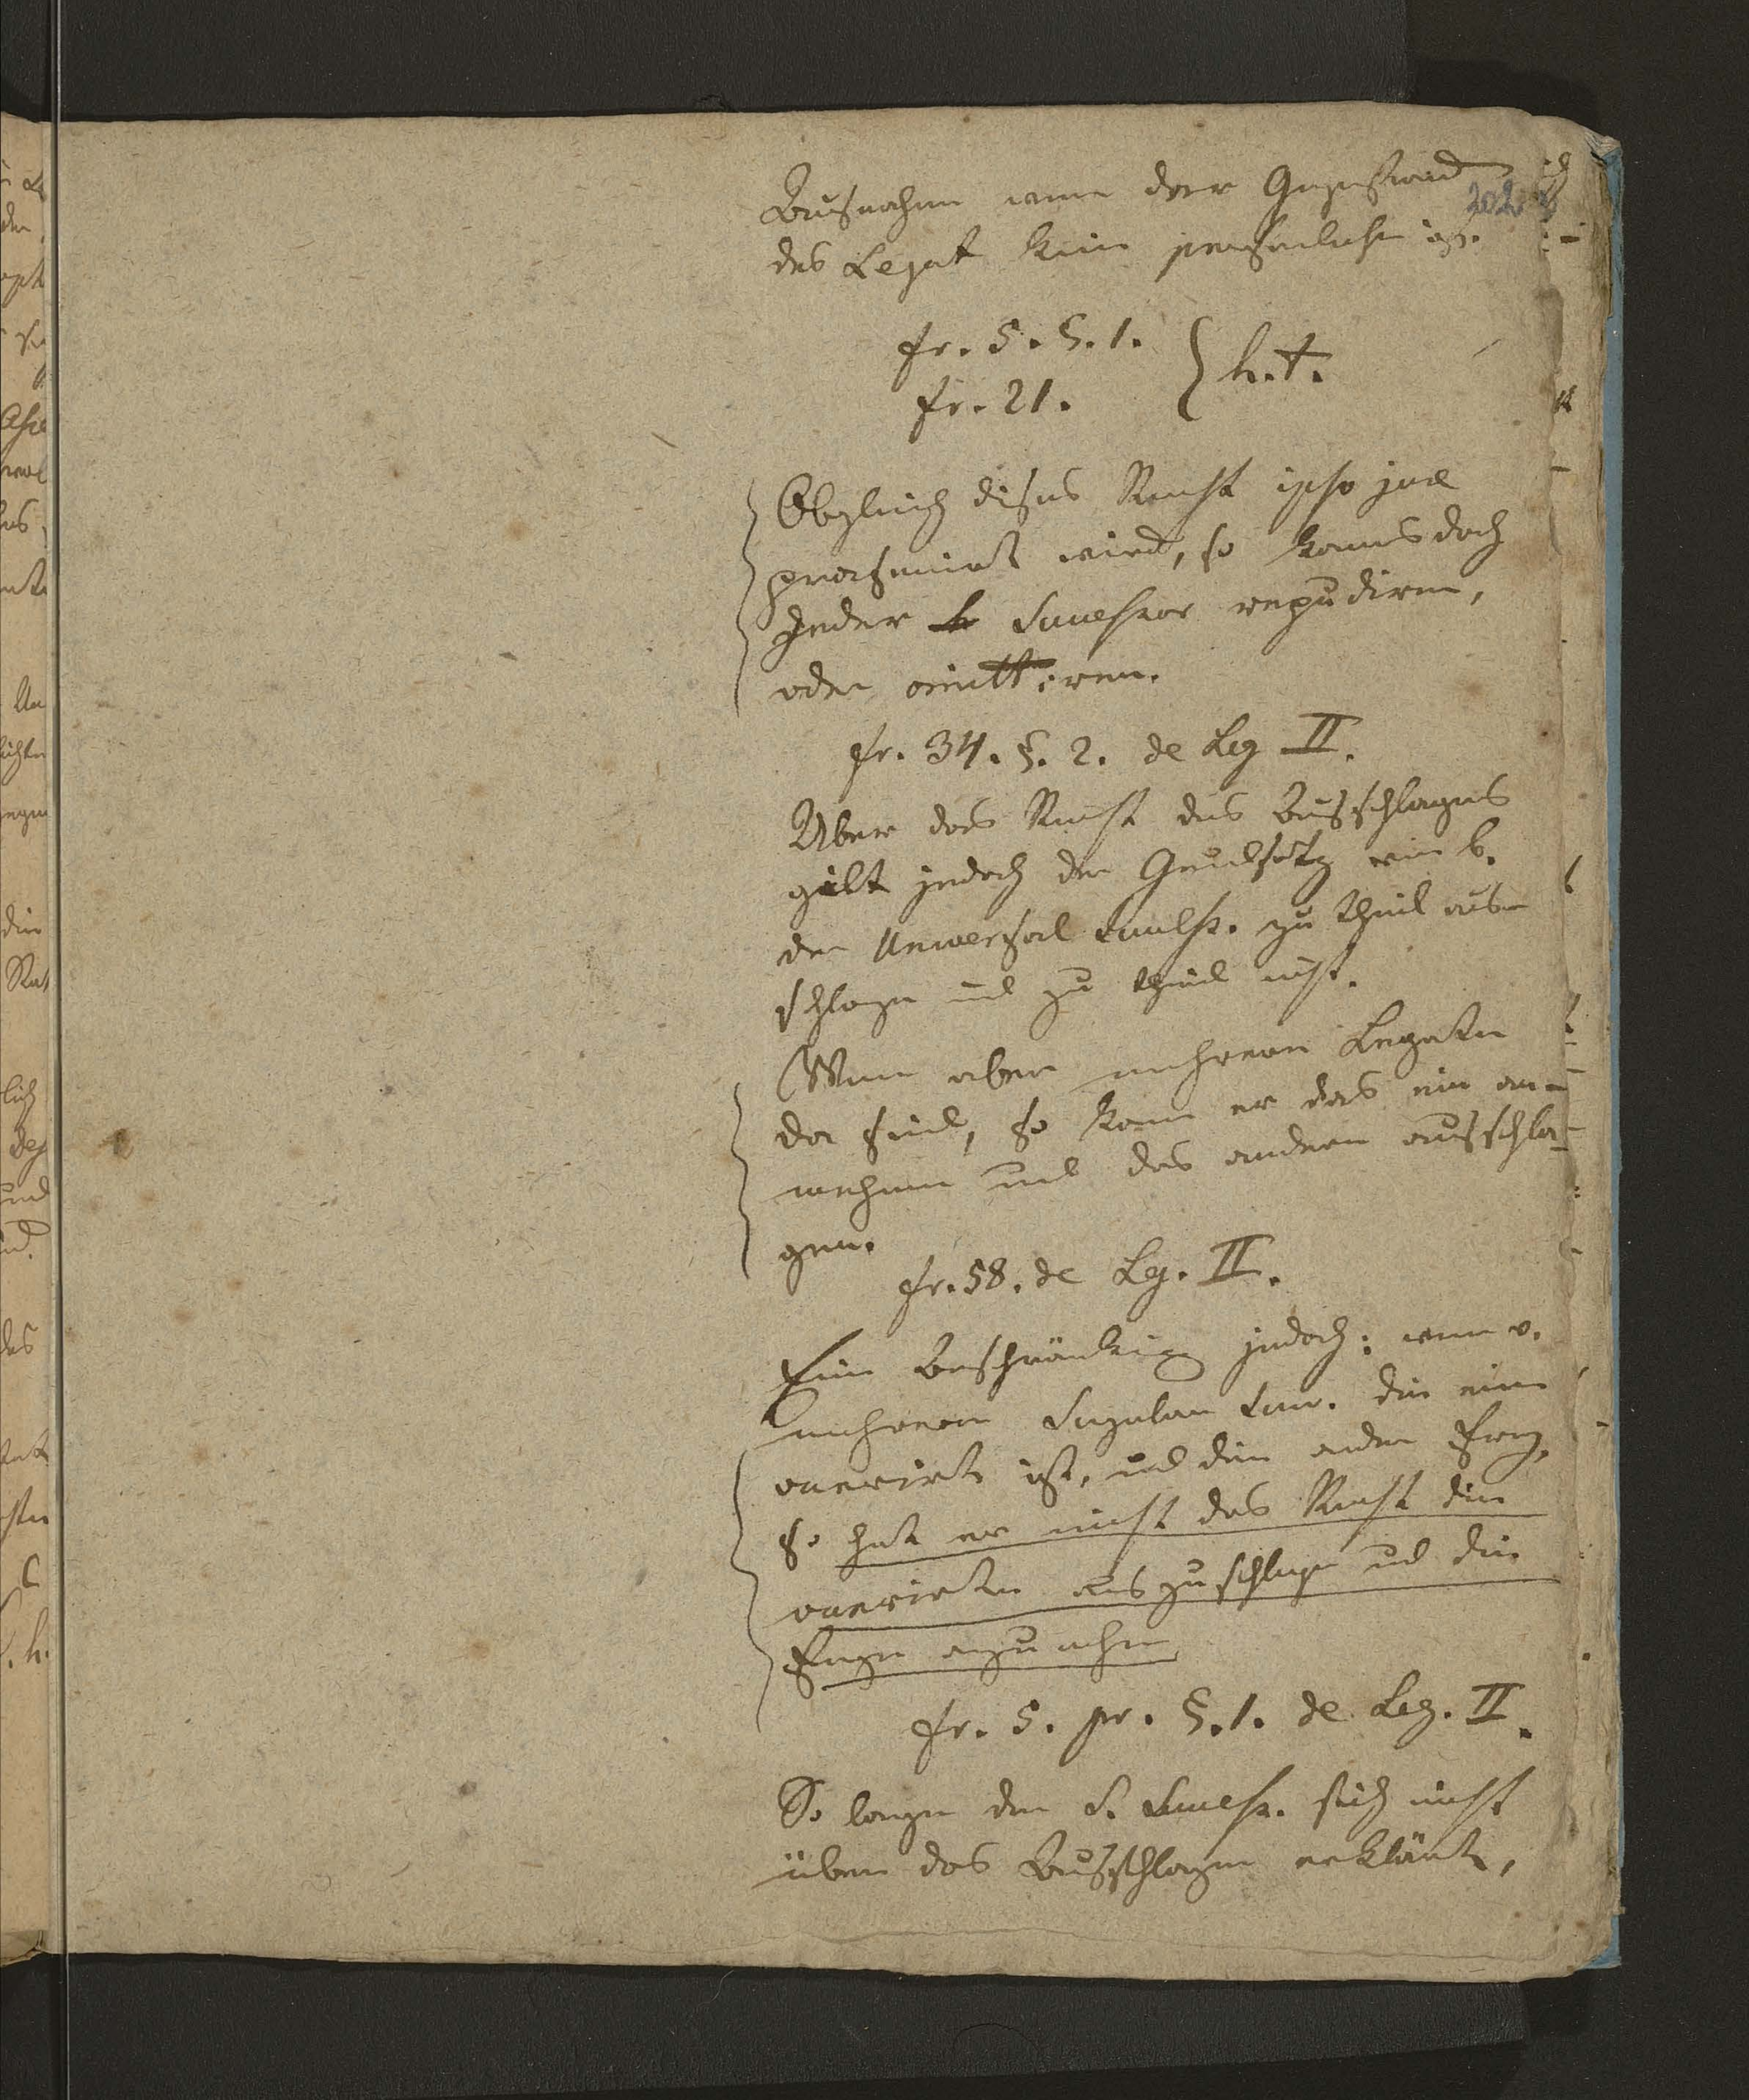 Ausnahme wenn der Gegenstand
202
des Legat kein persönliche ist.
fr. 5. §. 1.
fr. 21. } h. t.
Obgleich dieses Recht ipso jure
praesumirt wird, so kann es doch
Jeder Successor repudiren,
oder omittiren.
fr. 34. §. 2. de Leg II.
Über das Recht des Ausschlagens
gilt jedoch der Grundsatz wie b.
der Universal Success. zu theil aus-
schlagen und zu theil nicht.
Wenn aber mehrere Legaten
da sind, so kann er das ein an-
nehmen und das andere ausschla-
gen.
fr. 58. de Leg. II.
Eine Beschränkung jedoch: wenn v.
mehreren Singular Succ. die eine
onerirt ist, und die andere frey,
so hat er nicht das Recht die
onerirte auszuschlagen und die
freye anzunehmen
fr. 5. pr. §. 1. de Leg. II.
So lange der S. Success. sich nicht
über das Ausschlagen erklärt,